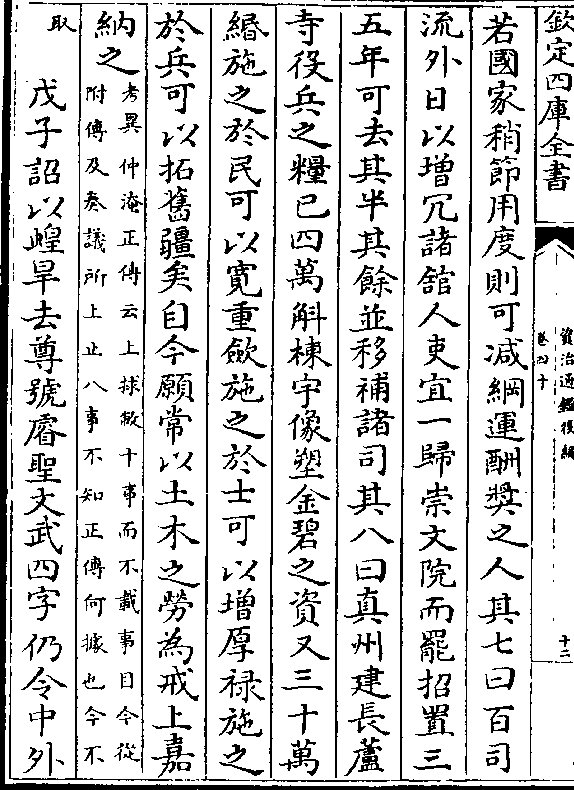 欽定四庫全書
資治通鑑後編
卷四十
十二
若國家稍節用度則可减綱運酬奬之人其七曰百司
流外日以增冗諸館人吏宜一歸崇文院而罷招置三
五年可去其半其餘並移補諸司其八曰真州建長蘆
寺役兵之糧已四萬斛棟宇像塑金碧之資又三十萬
緡施之於民可以寛重斂施之於士可以增厚禄施之
於兵可以拓舊疆矣自今願常以土木之勞為戒上嘉
納之
考異仲淹正傳云上捄敝十事而不載事目今從
附傳及奏議所上止八事不知正傳何據也今不
取
戊子詔以蝗旱去尊號睿聖文武四字仍令中外